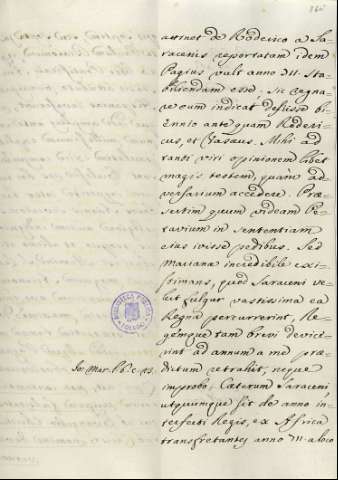 attinet de Roderico a Sa-
racenis reportatam, idem
Pagius vult anno 711. sta-
biliendam esse. Sic regna-
re eum indicat desiisse bi-
ennio antequam Roderi-
cus, et Vasaus. Mihi ad
tanti viri opinionem libet
magis testem, quàm ad-
versarium accedere. Præ-
sertim quum videam Pe-
tavium in sententiam
eius ivisse pedibus. Sed
Mariana incredibile exi-
stimans, quod Saraceni ve-
lut fulgur vastissima ea
Regna percurrerint, Re-
gemque tam brevi device-
rint ad annum a me præ-
dictum retrahit; neque
improbo. Cæterum Saraceni
utqumque sit de anno in-
terfecti Regis, ex Africa
transfretantes anno 711. ab eo